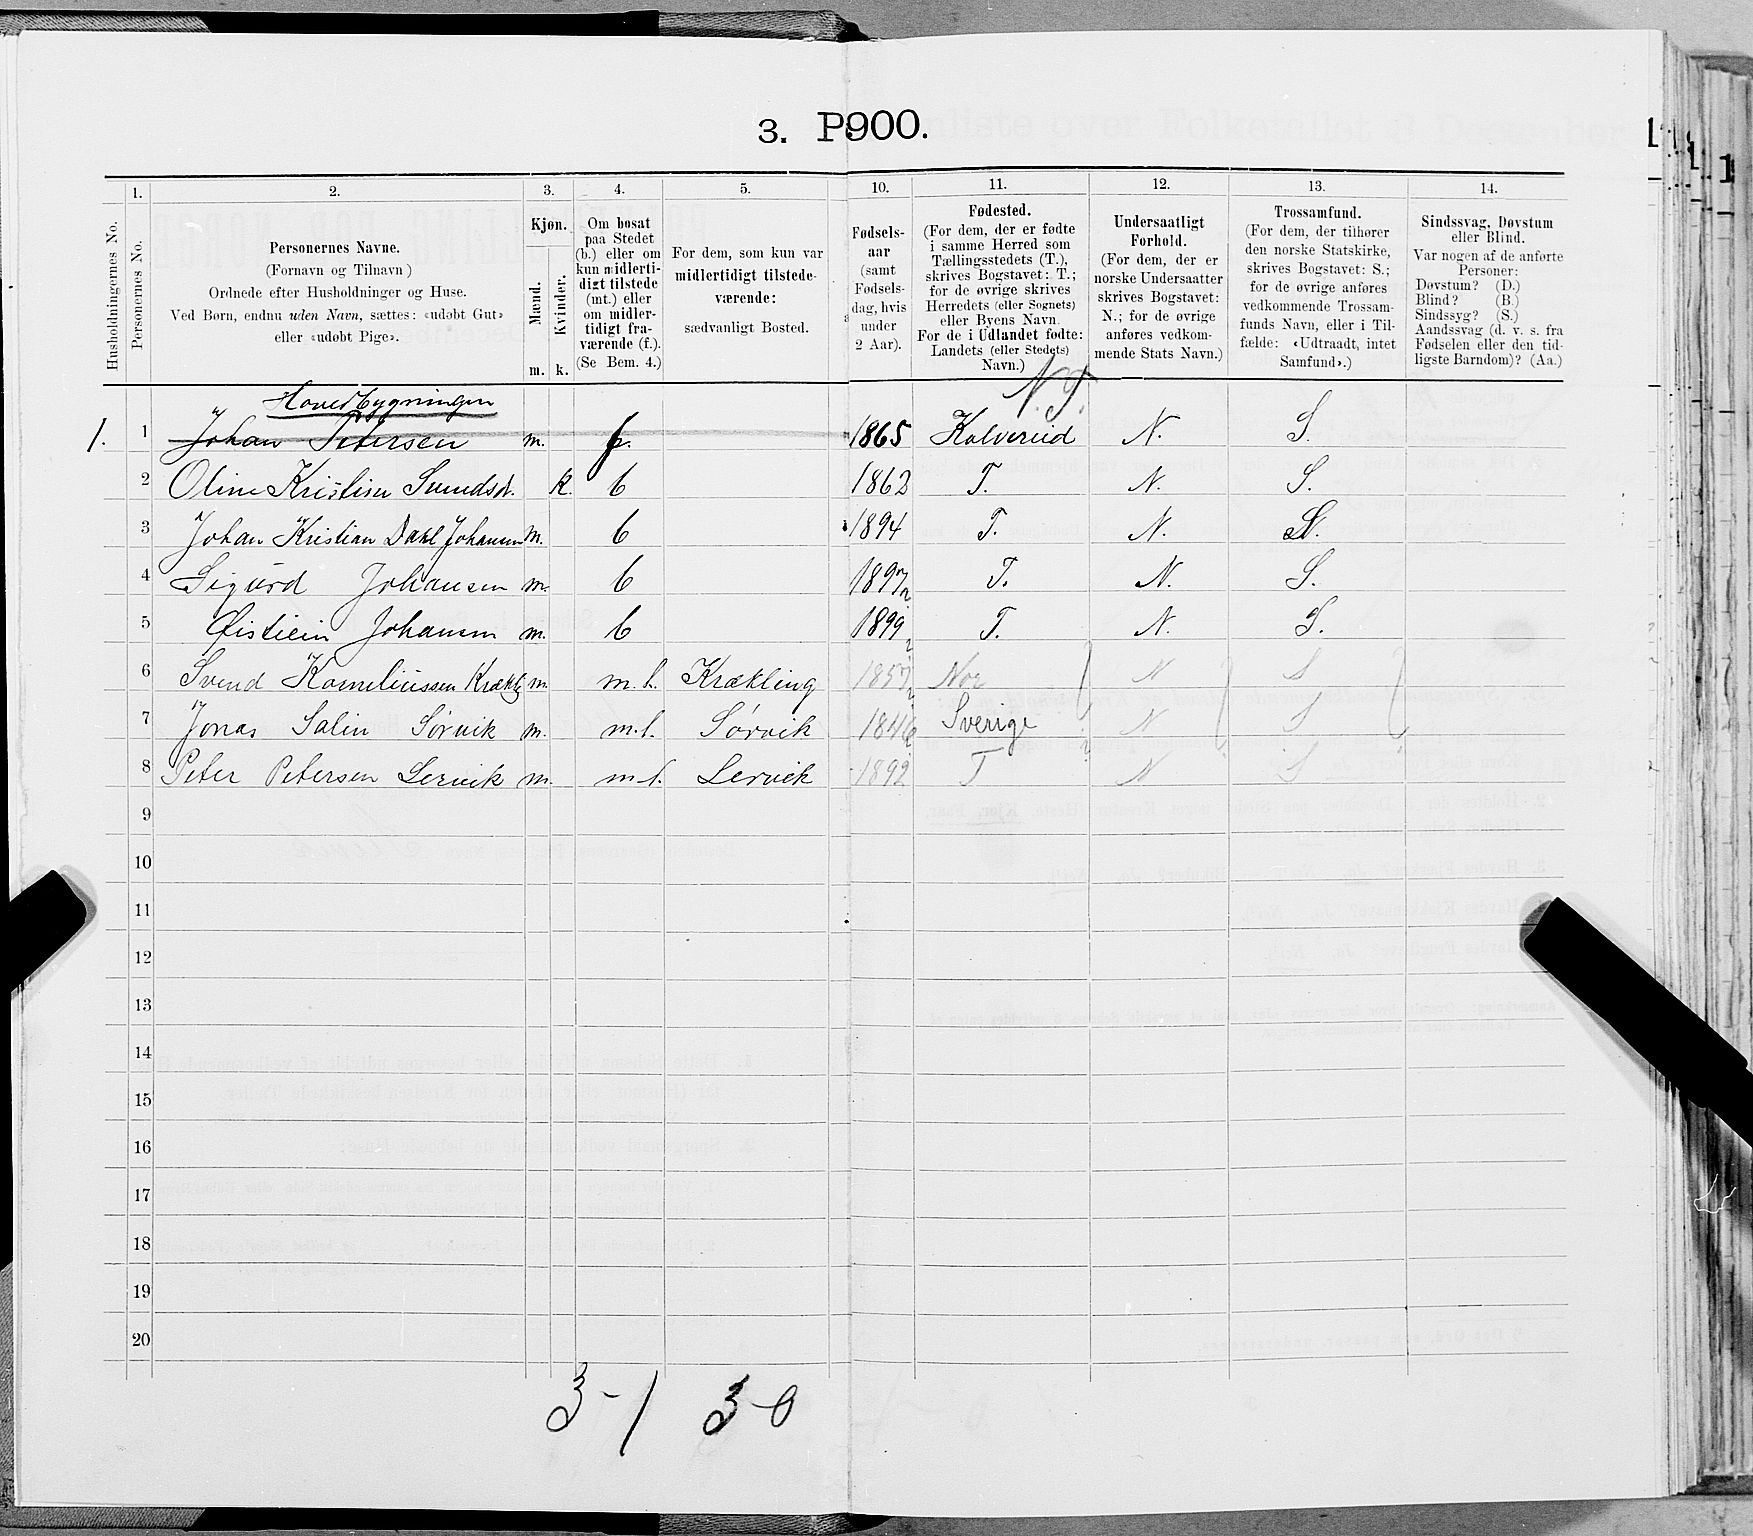 3. P900.
1. 2. 3. 4. 5. 10. 11. 12. 13. 14.
Husholdningernes No.
Personernes No.
Personernes Navne.
(Fornavn og Tilnavn)
Ordnede efter Husholdninger og Huse.
Ved Børn, endnu uden Navn, sættes: «udøbt Gut»
eller «udøbt Pige».
Kjøn.
Mænd.
Kvinder.
m. k.
Om bosat
paa Stedet
(b.) eller om
kun midlerti-
digt tilstede
(mt.) eller
om midler-
tidigt fra-
værende (f.).
(Se Bem. 4.)
For dem, som kun var
midlertidigt tilstede-
værende:
sædvanligt Bosted.
Fødsels-
aar
(samt
Fødsels-
dag, hvis
under
2 Aar).
Fødested.
(For dem, der er fødte
i samme Herred som
Tællingsstedets (T.),
skrives Bogstavet: T.;
for de øvrige skrives
Herredets (eller Sognets)
eller Byens Navn.
For de i Udlandet fødte:
Landets (eller Stedets)
Navn.)
Undersaatligt
Forhold.
(For dem, der er
norske Undersaatter
skrives Bogstavet:
N.; for de øvrige
anføres vedkom-
mende Stats Navn.)
Trossamfund.
(For dem, der tilhører
den norske Statskirke,
skrives Bogstavet: S.;
for de øvrige anføres
vedkommende Trossam-
funds Navn, eller i Til-
fælde: «Udtraadt, intet
Samfund».)
Sindssvag, Døvstum
eller Blind.
Var nogen af de anførte
Personer:
Døvstum? (D.)
Blind? (B.)
Sindssyg? (S.)
Aandssvag (d. v. s. fra
Fødselen eller den tid-
ligste Barndom)? (Aa.)
Hovedbygningen
N.T.
1. 1 Johan Petersen m. f. 1865 Kolvereid N. S.
2 Oline Kristine Svendsdt. k. b 1862 T. N. S.
3 Johan Kristian Dahl Johansen m. b 1894 T. N. S.
4 Sigurd Johansen m. b 1897 T. N. S.
5 Øistein Johansen m. b 1899 T. N. S.
6 Svend Korneliussen m. m.t. Krækling 1857 N S
7 Jonas Salin Sørvik m. m.t. Sørvik 1846 Sverige N S
8 Peter Petersen Lervik m. m.t. Lervik 1892 T N S
9
10
11
12
13
14
15
16
17
18
19
20
3-1 3-0